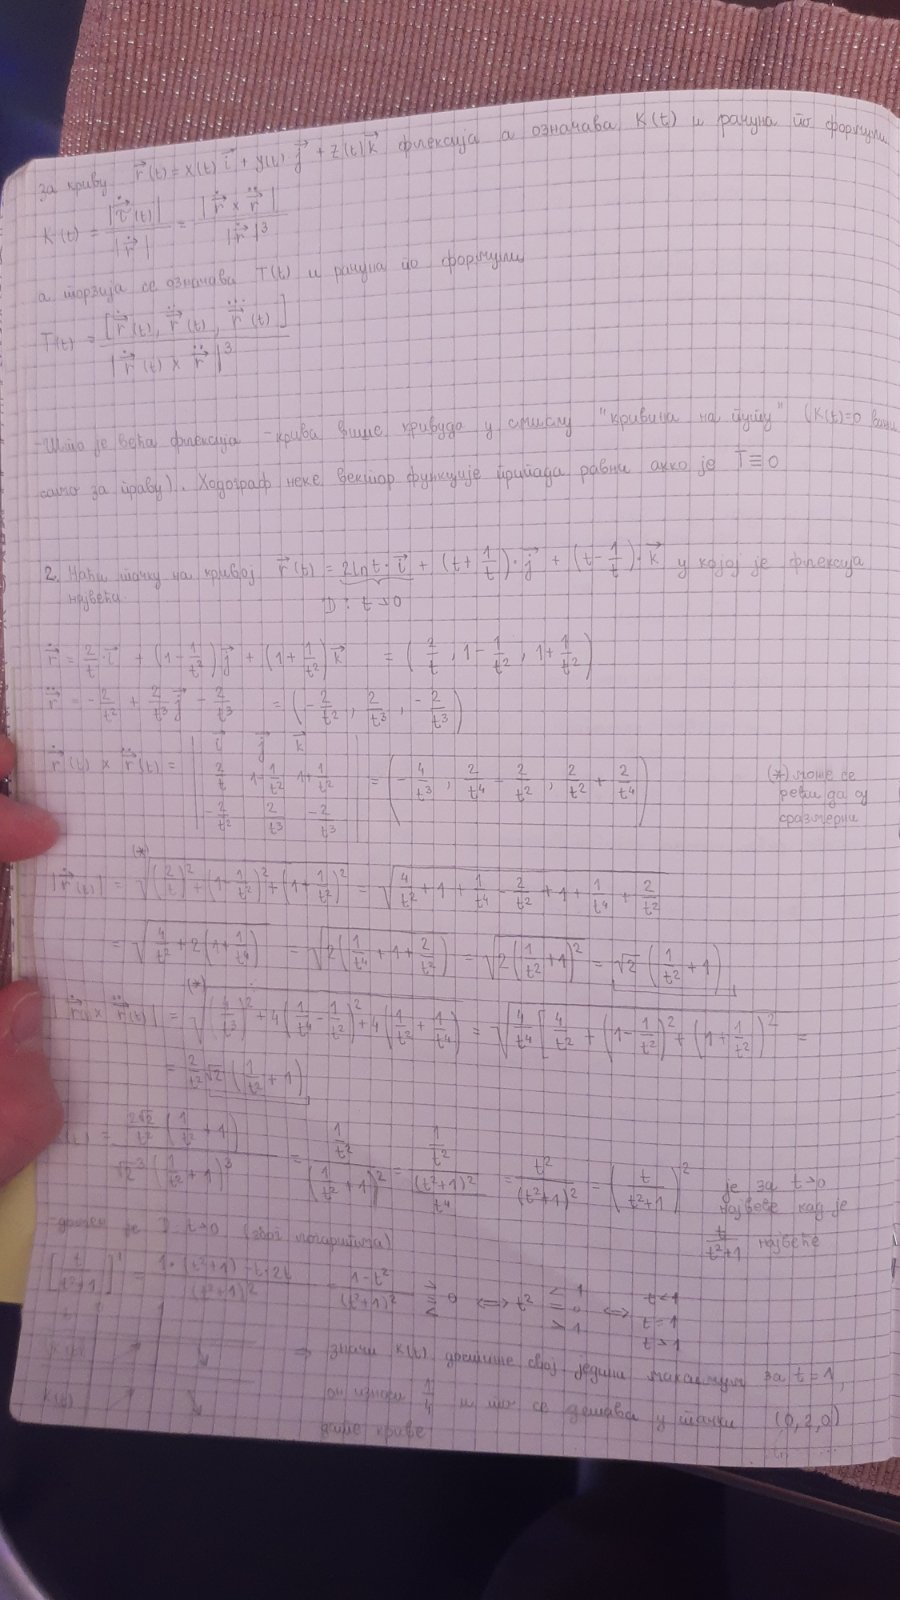 за криву r⃗(t) = x(t) i⃗ + y(t) j⃗ + z(t) k⃗ флексија а означава K(t) и рачуна по формули
K(t) = |τ⃗̇(t)| / |r⃗̇| = |r⃗̇ × r⃗̈| / |r⃗̇|³
а торзија се означава T(t) и рачуна по формули
T(t) = [r⃗̇(t), r⃗̈(t), r⃗⃛(t)] / |r⃗̇(t) × r⃗̈|³
-Што је већа флексија - крива више кривуда у смислу "кривина на путу" (K(t)=0 важи
само за праву). Ходограф неке вектор функције припада равни акко је T≡0
2. Наћи тачку на кривој r⃗(t) = 2lnt·i⃗ + (t+1/t)·j⃗ + (t-1/t)·k⃗ у којој је флексија
највећа.
D: t>0
r⃗̇ = 2/t·i⃗ + (1-1/t²)j⃗ + (1+1/t²)k⃗ = (2/t, 1-1/t², 1+1/t²)
r⃗̈ = -2/t² + 2/t³ j⃗ - 2/t³ = (-2/t², 2/t³, -2/t³)
r⃗̇(t) × r⃗̈(t) = | i⃗ j⃗ k⃗ |
| 2/t 1-1/t² 1+1/t² | = (-4/t³, 2/t⁴ - 2/t², 2/t² + 2/t⁴)
| -2/t² 2/t³ -2/t³ |
(*) може се
рећи да су
сразмерни
(*)
|r⃗̇(t)| = √((2/t)² + (1-1/t²)² + (1+1/t²)²) = √(4/t² + 1 + 1/t⁴ - 2/t² + 1 + 1/t⁴ + 2/t²)
= √(4/t² + 2(1+1/t⁴)) = √(2(1/t⁴ + 1 + 2/t²)) = √(2(1/t² + 1)²) = √2 (1/t² + 1)
(*)
|r⃗̇(t) × r⃗̈(t)| = √((4/t³)² + 4(1/t⁴ - 1/t²)² + 4(1/t² + 1/t⁴)) = √(4/t⁴ [4/t² + (1-1/t²)² + (1+1/t²)² =
= 2/t² √2 (1/t² + 1)
K(t) = 2√2/t² (1/t² + 1) / √2³ (1/t² + 1)³ = 1/t² / (1/t² + 1)² = 1/t² / (t²+1)²/t⁴ = t²/(t²+1)² = (t/(t²+1))² је за t>0
највеће кад је
t/(t²+1) највеће
-домен је D: t>0 (због логаритма)
[t/(t²+1)]' = 1·(t²+1) - t·2t / (t²+1)² = 1-t² / (t²+1)² > = < 0 ⟺ t² < 1 = 0 > 1 ⟺ t<1
t=1
t>1
K(t)
⇒ значи K(t) достиже свој једини максимум за t=1,
он износи 1/4 и то се дешава у тачки (0,2,0)
дате криве